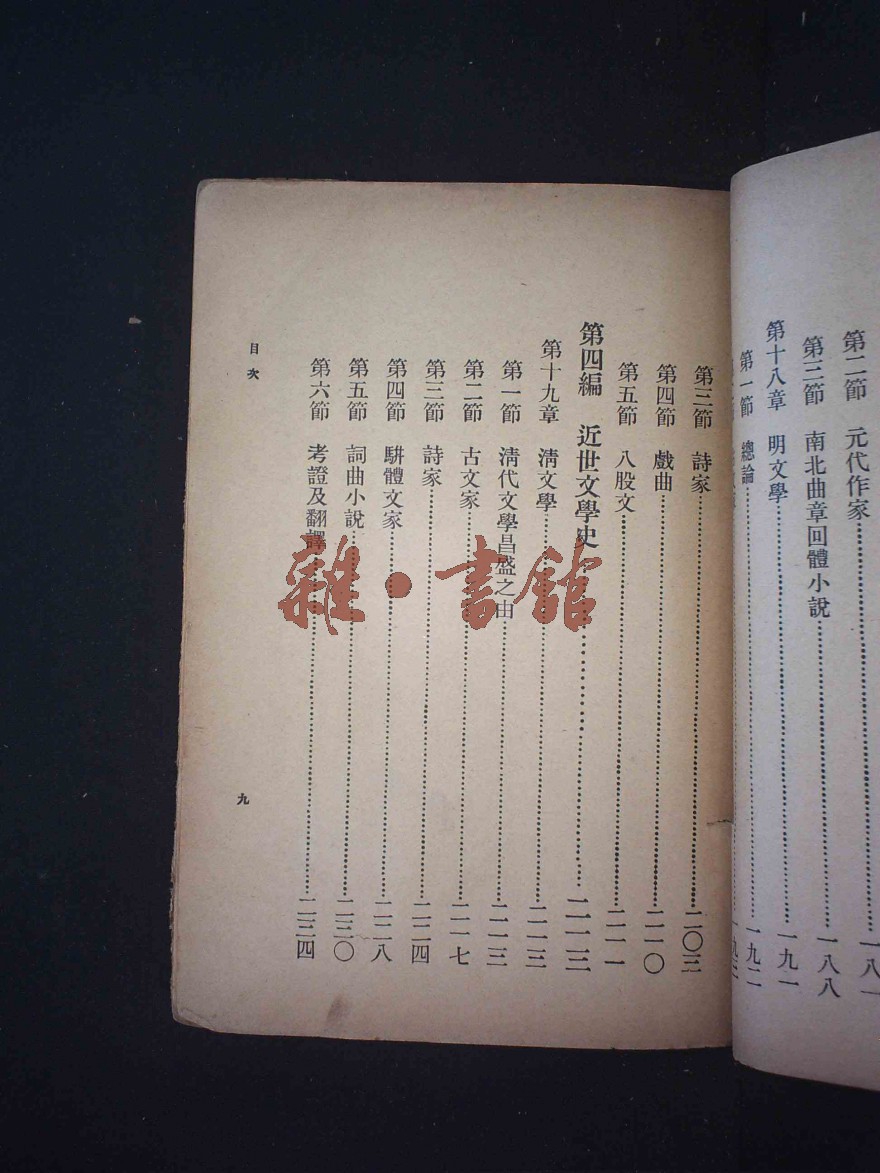 第二節　元代作家……一八一
第三節　南北曲章回體小說……一八八
第十八章　明文學……一九一
第一節　總論……一九二
一九三
第三節　詩家……二〇三
第四節　戲曲……二一〇
第五節　八股文……二一一
第四編　近世文學史……二一三
第十九章　清文學……二一三
第一節　清代文學昌盛之由……二一三
第二節　古文家……二一七
第三節　詩家……二二四
第四節　駢體文家……二二八
第五節　詞曲小說……二三〇
第六節　考證及翻譯……二三四
目次
九
雜·書館